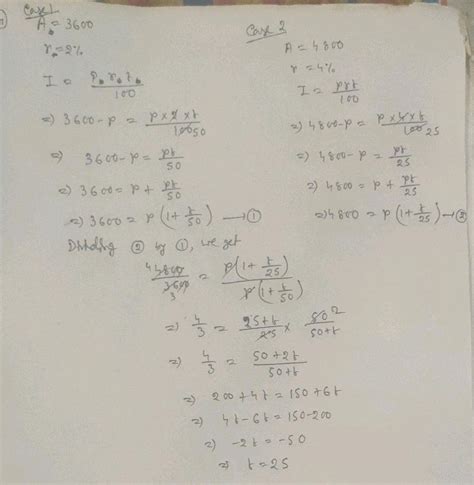 Case 1
A = 3600
r = 2%
I = p.r.t. / 100
=) 3600-P = P×2×t / 100 50
=) 3600-P = Pt/50
=) 3600 = P + Pt/50
=) 3600 = P(1 + t/50) → ①
Case 2
A = 4800
r = 4%
I = Prt / 100
=) 4800-P = P×4×t / 100 25
=) 4800-P = Pt/25
=) 4800 = P + Pt/25
=) 4800 = P(1 + t/25) → ②
Dividing ② by ①, we get
4 4800 / 3600 3 = P(1 + t/25) / P(1 + t/50)
=) 4/3 = 25+t / 25 × 50 2 / 50+t
=) 4/3 = 50+2t / 50+t
=) 200+4t = 150+6t
=) 4t-6t = 150-200
=) -2t = -50
=) t = 25